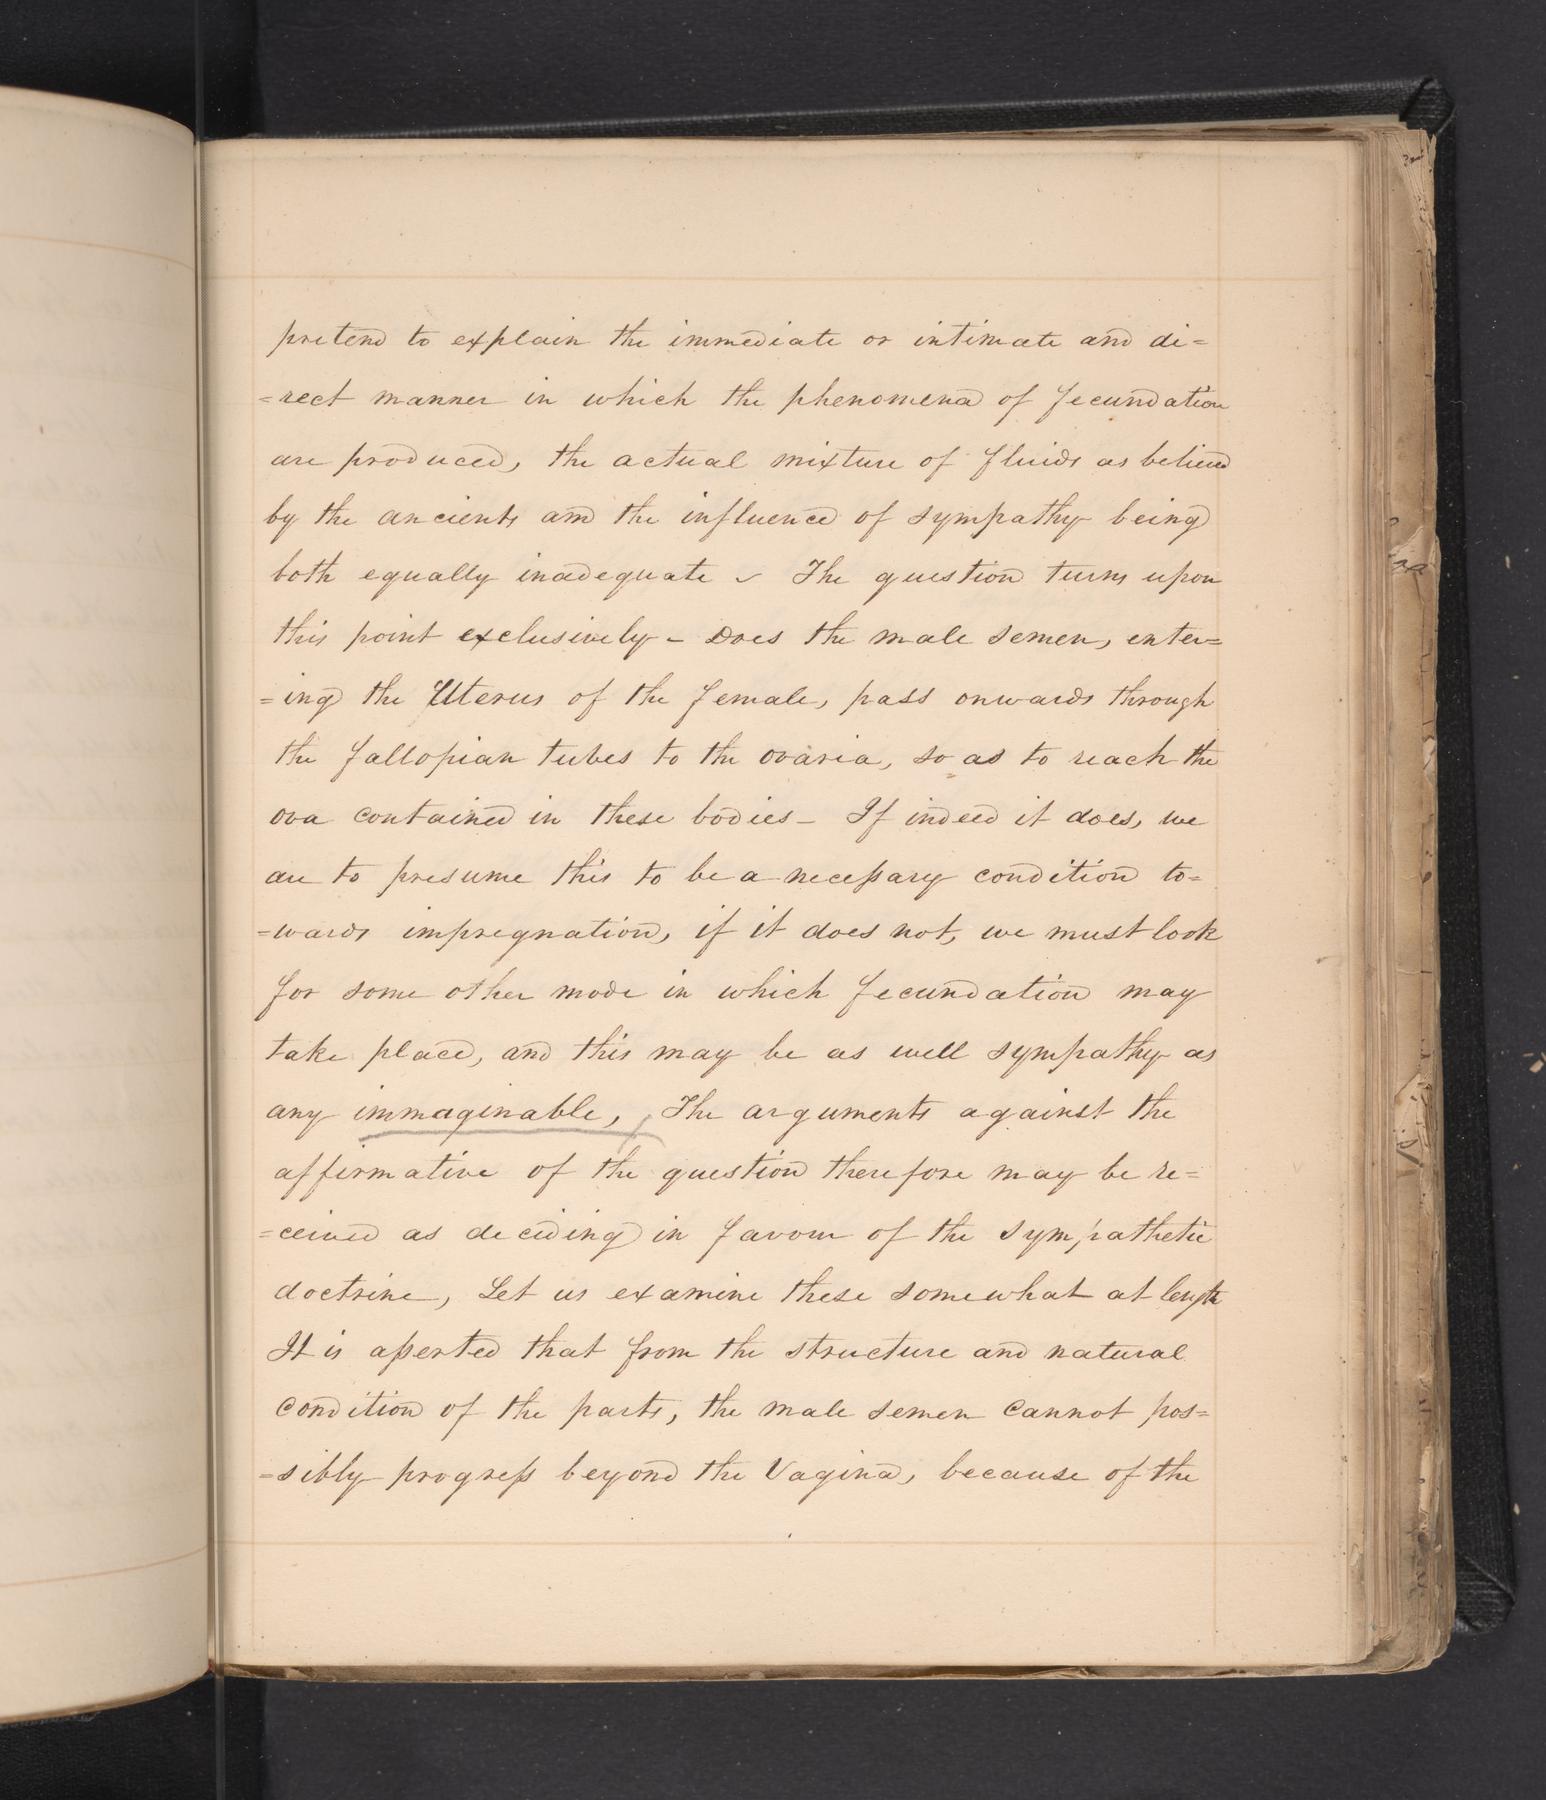 pretend to explain the immediate or intimate and di=
=rect manner in which the phenomena of fecundation
are produced, the actual mixture of fluids as believed
by the ancients and the influence of sympathy being
both equally inadequate - The question turns upon
this point exclusively - Does the male semen, enter=
=ing the Uterus of the female, pass onwards through
the fallopian tubes to the ovaria, so as to reach the
ova contained in these bodies - If indeed it does, we
are to presume this to be a necessary condition to=
=wards impregnation, if it does not, we must look
for some other mode in which fecundation may
take place, and this may be as well sympathy as
any immaginable, The arguments against the
affirmative of the question therefore may be re=
=ceived as deciding in favour of the sympathetic
doctrine, Let us examine these somewhat at length
It is asserted that from the structure and natural
condition of the parts, the male semen cannot pos=
=sibly progress beyond the Vagina, because of the